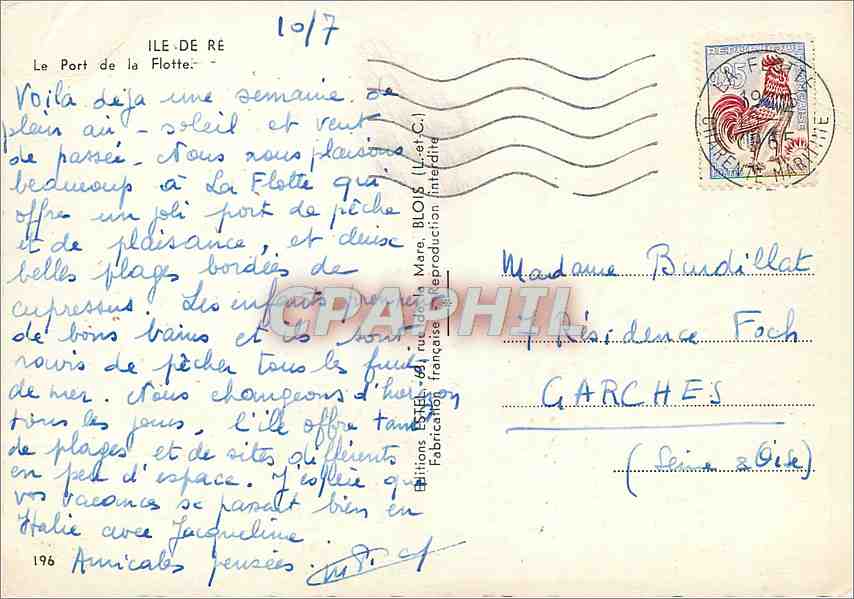 10/7
ILE DE RÉ
Le Port de la Flotte.
Voilà déjà une semaine de
plein air - soleil et vent
de passée. Nous nous plaisons
beaucoup à La Flotte qui
offre un joli port de pêche
et de plaisance, et deux
belles plages bordées de
cupressus. Les enfants prennent
de bons bains et ils sont
ravis de pêcher tous les fruits
de mer. Nous changeons d'horizon
tous les jours, l'île offre tant
de plages et de sites différents
en peu d'espace. J'espère que
vos vacances se passent bien en
Italie avec Jacqueline
Amicales pensées.
196
Editions ESTEL - 63, rue de la Mare, BLOIS (L.-et-C.)
Fabrication française - Reproduction interdite
CPAPHIL
REPUBLIQUE
0,25
LA FLOTTE
CHARENTE MARITIME
Madame Burdillat
7 Résidence Foch
GARCHES
(Seine & Oise)